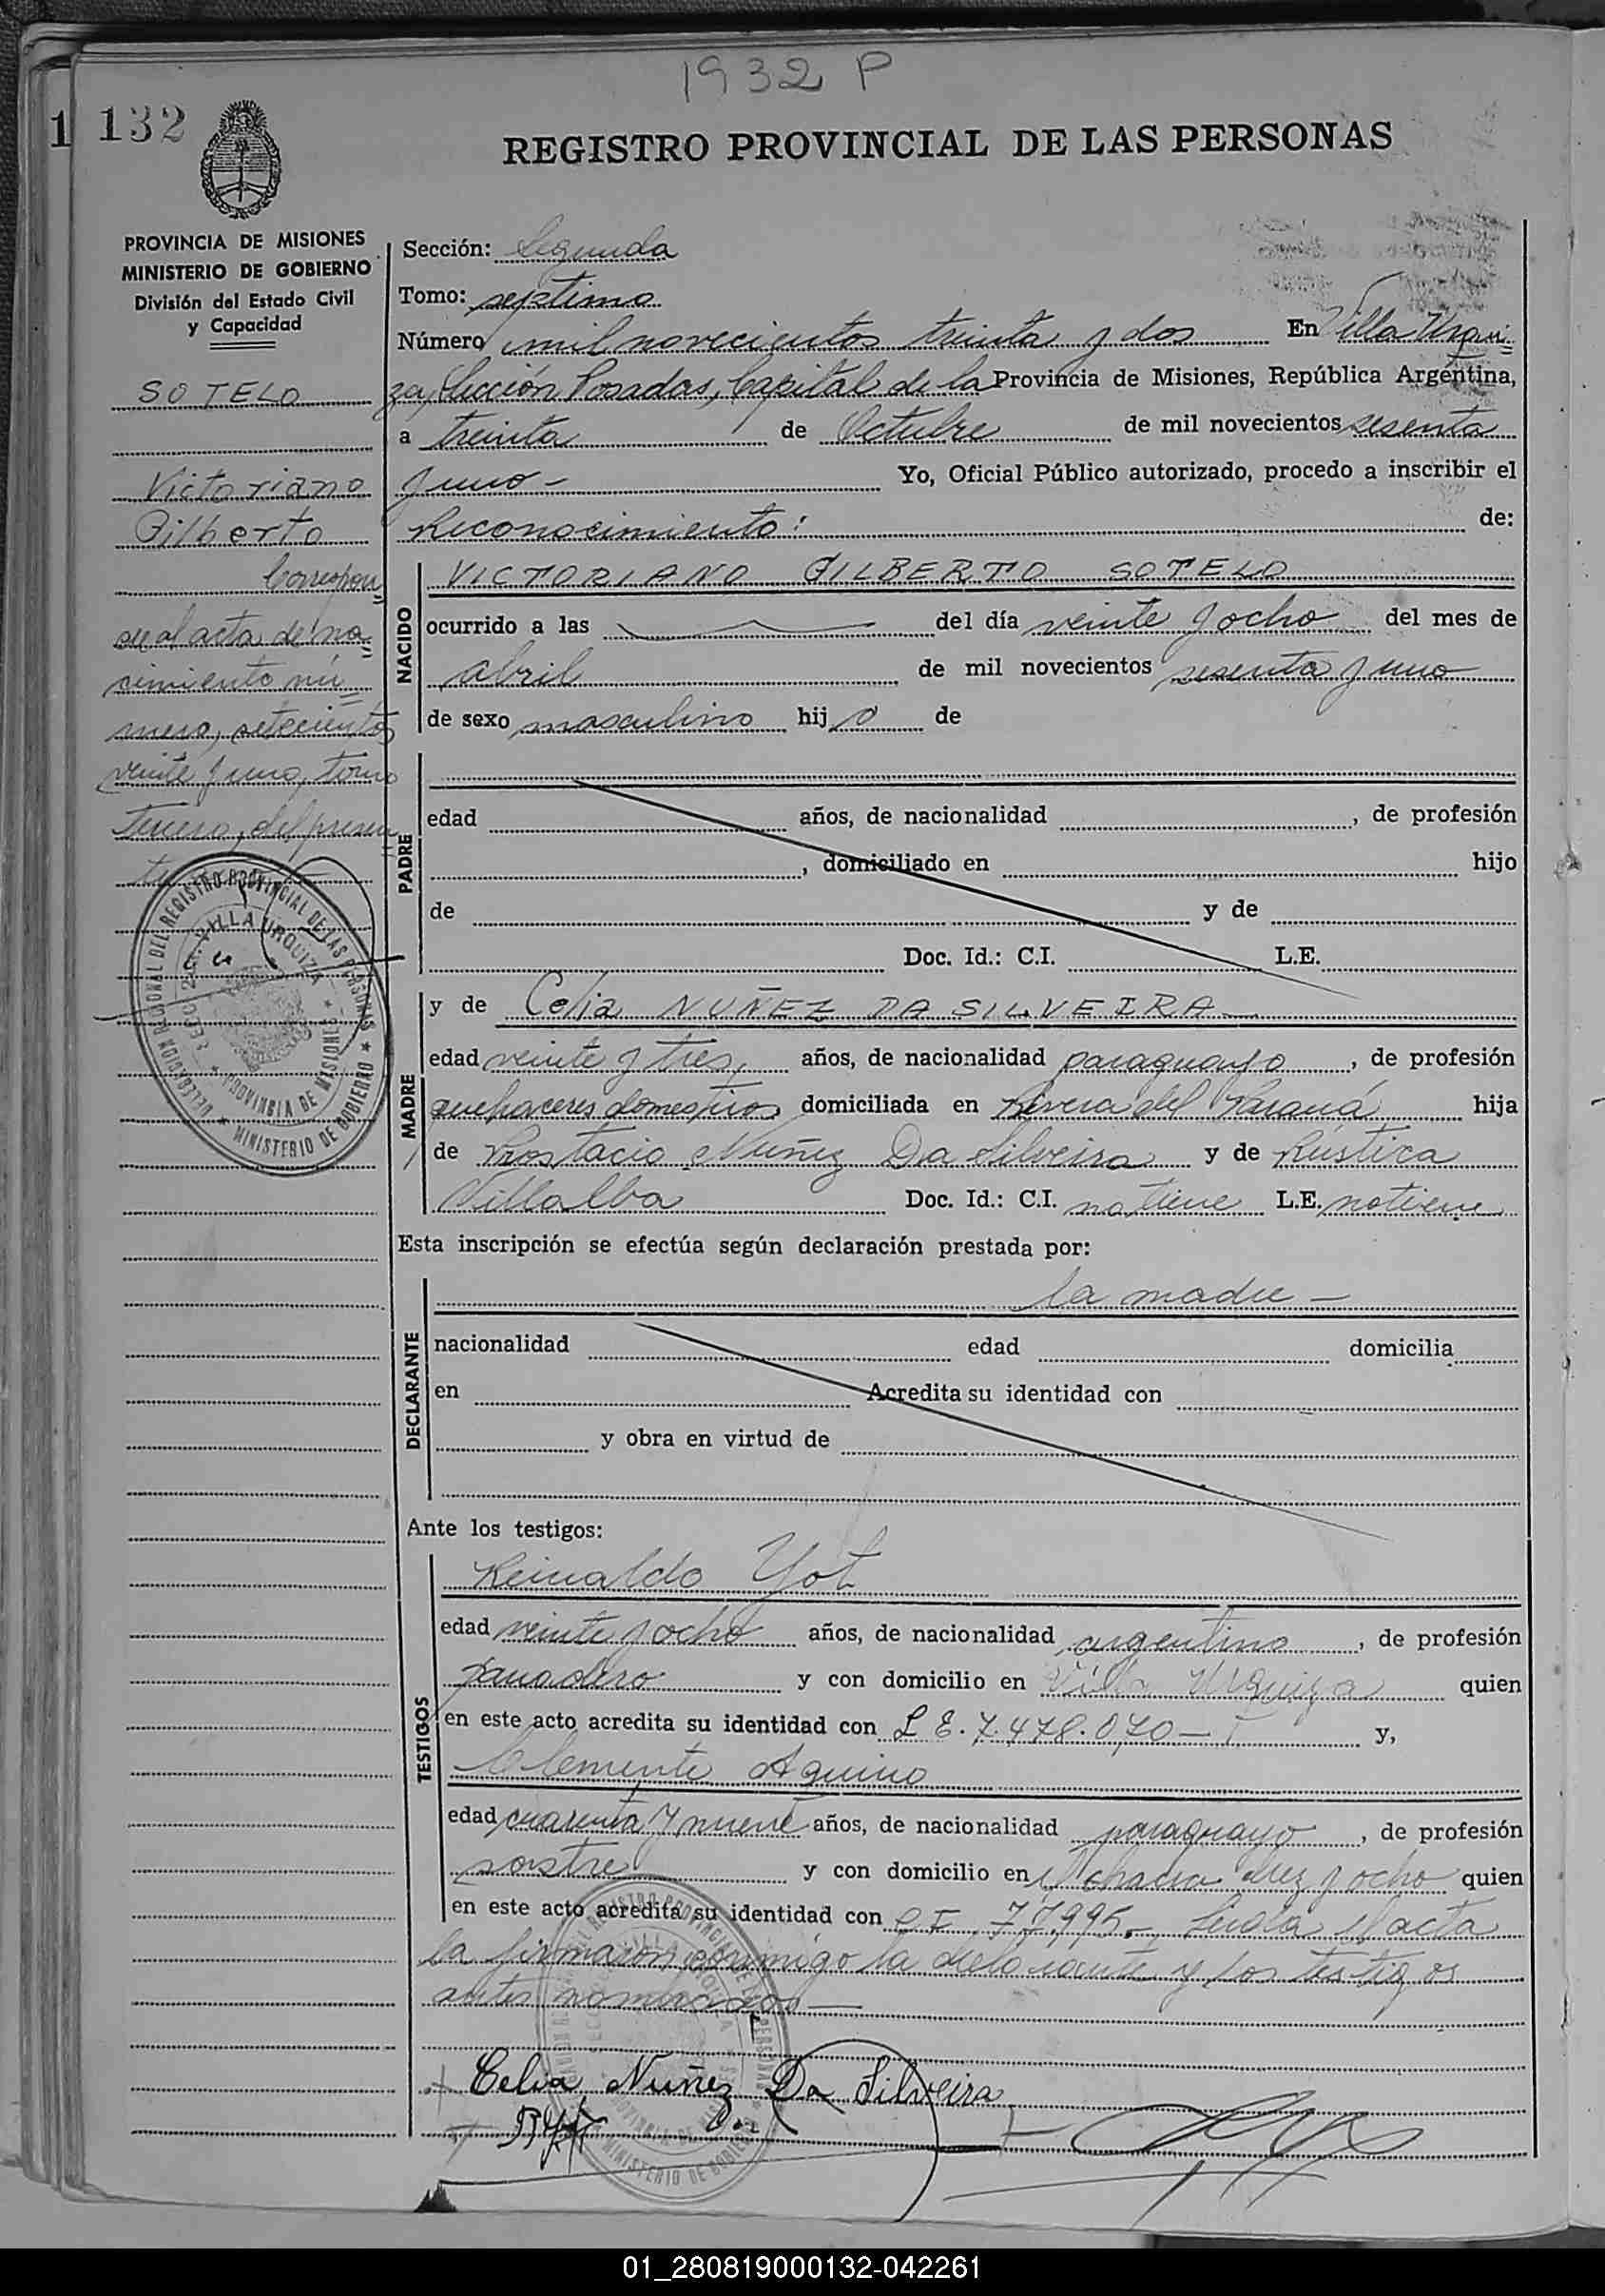 1932 P
1 132
REGISTRO PROVINCIAL DE LAS PERSONAS
PROVINCIA DE MISIONES
MINISTERIO DE GOBIERNO
División del Estado Civil
y Capacidad
SOTELO
Victoriano
Gilberto
Correspon
de al acta de na
cimiento nú
mero, setecientos
veinte y uno, tomo
Tercero, del presen
te
Sección: Segunda
Tomo: septimo
Número mil novecientos treinta y dos En Villa Urqui
za, Sección Posadas, Capital de la Provincia de Misiones, República Argentina,
a treinta de Octubre de mil novecientos sesenta
y uno - Yo, Oficial Público autorizado, procedo a inscribir el
Reconocimiento: de:
NACIDO
VICTORIANO GILBERTO SOTELO
ocurrido a las del día veinte y ocho del mes de
abril de mil novecientos sesenta y uno
de sexo masculino hijo de
PADRE
edad años, de nacionalidad , de profesión
, domiciliado en hijo
de y de
Doc. Id.: C.I. L.E.
MADRE
y de Celia NUÑEZ DA SILVEIRA
edad veinte y tres, años, de nacionalidad paraguaya , de profesión
quehaceres domesticos domiciliada en Rivera del Paraná hija
de Nuñez Da Silveira y de Rústica
Villalba Doc. Id.: C.I. no tiene L.E. no tiene
Esta inscripción se efectúa según declaración prestada por:
DECLARANTE
la madre -
nacionalidad edad domicilia
en Acredita su identidad con
y obra en virtud de
Ante los testigos:
TESTIGOS
Reinaldo Yot
edad veinte y ocho años, de nacionalidad argentino , de profesión
panadero y con domicilio en Villa Urquiza quien
en este acto acredita su identidad con L E. 7.478.070 - y,
Clemente Aquino
edad cuarenta y nueve años, de nacionalidad paraguayo , de profesión
sastre y con domicilio en chacra diez y ocho quien
en este acto acredita su identidad con C I 77.995.- Leida el acta
la firmaron conmigo la declarante y los testigos
antes nombrados -
Celia Nuñez Da Silveira
DELEGACION REGIONAL DEL REGISTRO PROVINCIAL DE LAS PERSONAS
SECC. 2da. VILLA URQUIZA
PROVINCIA DE MISIONES
MINISTERIO DE GOBIERNO
01_280819000132-042261